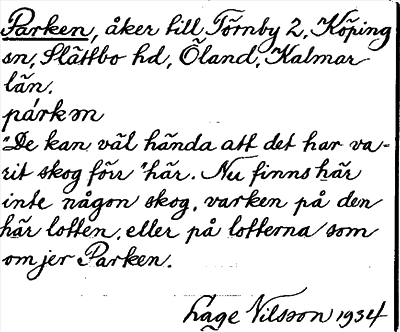 Parken, åker till Törnby 2, Köping
sn, Slättbo hd, Öland, Kalmar
län.
párkm
"De kan väl hända att det har va-
rit skog förr "här. Nu finns här
inte någon skog, varken på den
här lotten, eller på lotterna som
omjer Parken.
Låge Nilsson 1934